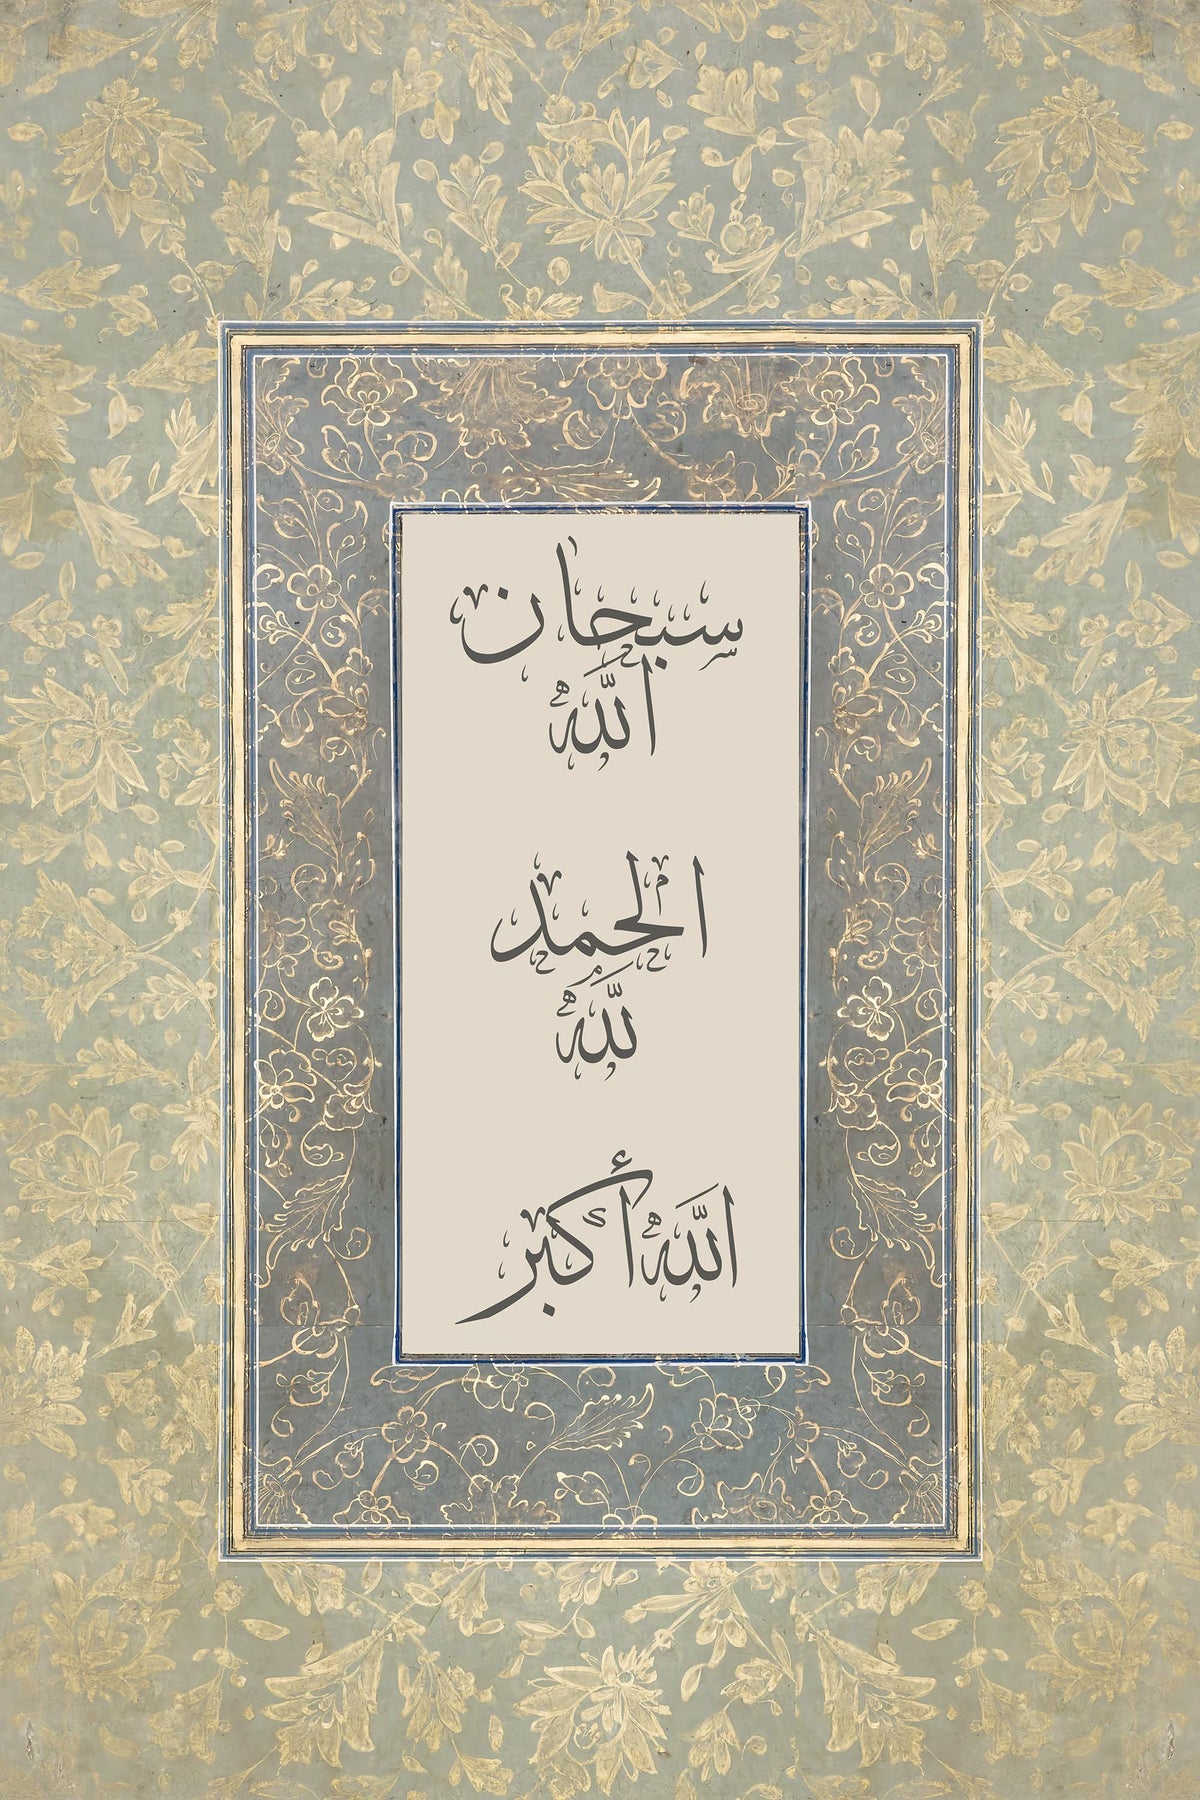 سبحان
اللَّه
الحمد
للَّه
اللَّه أكبر